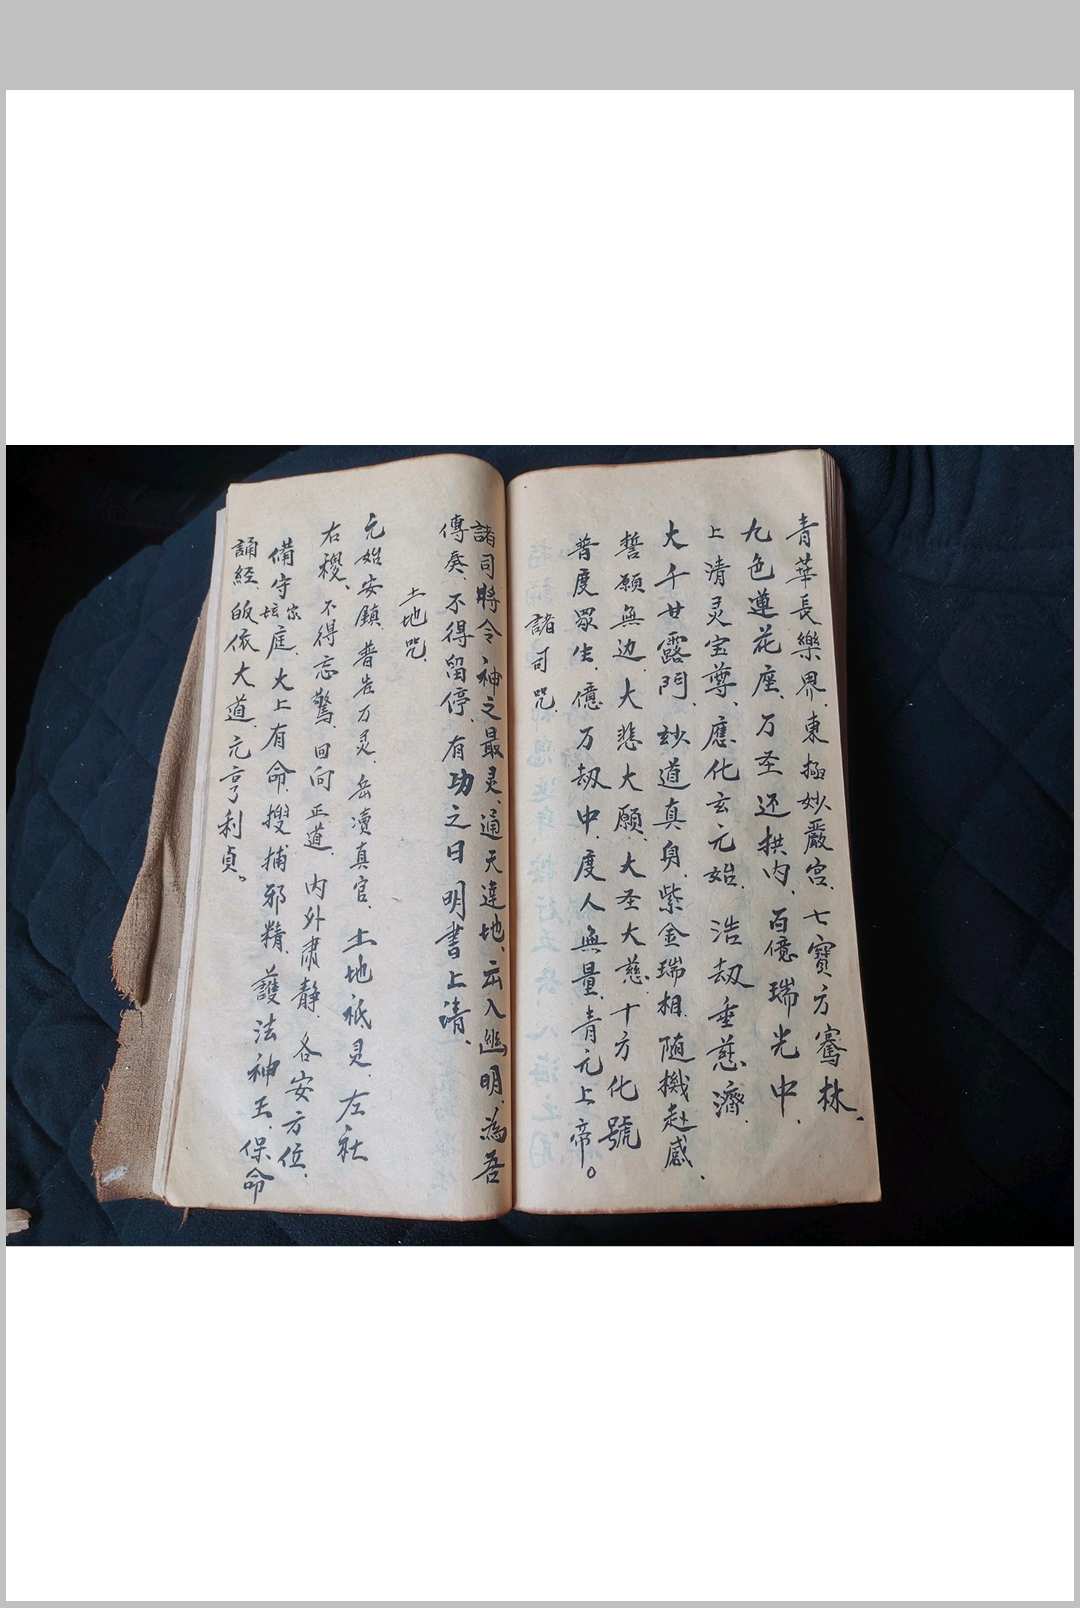 青華長樂界、東極妙嚴宮、七寶方騫林、
九色蓮花座、万圣还拱内、百億瑞光中、
上清灵宝尊、應化玄元始、浩劫垂慈濟、
大千甘露門、妙道真身、紫金瑞相、随機赴感、
誓願無边、大悲大願、大圣大慈、十方化號
普度眾生、億万劫中、度人無量、青元上帝。
諸司咒、
諸司將令、神之最灵、通天達地、出入幽明、為吾
傳奏、不得留停、有功之日、明書上清、
土地咒、
元始安鎮、普告万灵、岳瀆真官、土地祇灵、左社
右稷、不得忘驚、回向正道、内外肅静、各安方位、
備守家坛庭、太上有命、搜捕邪精、護法神王、保命
誦經、皈依大道、元亨利貞。